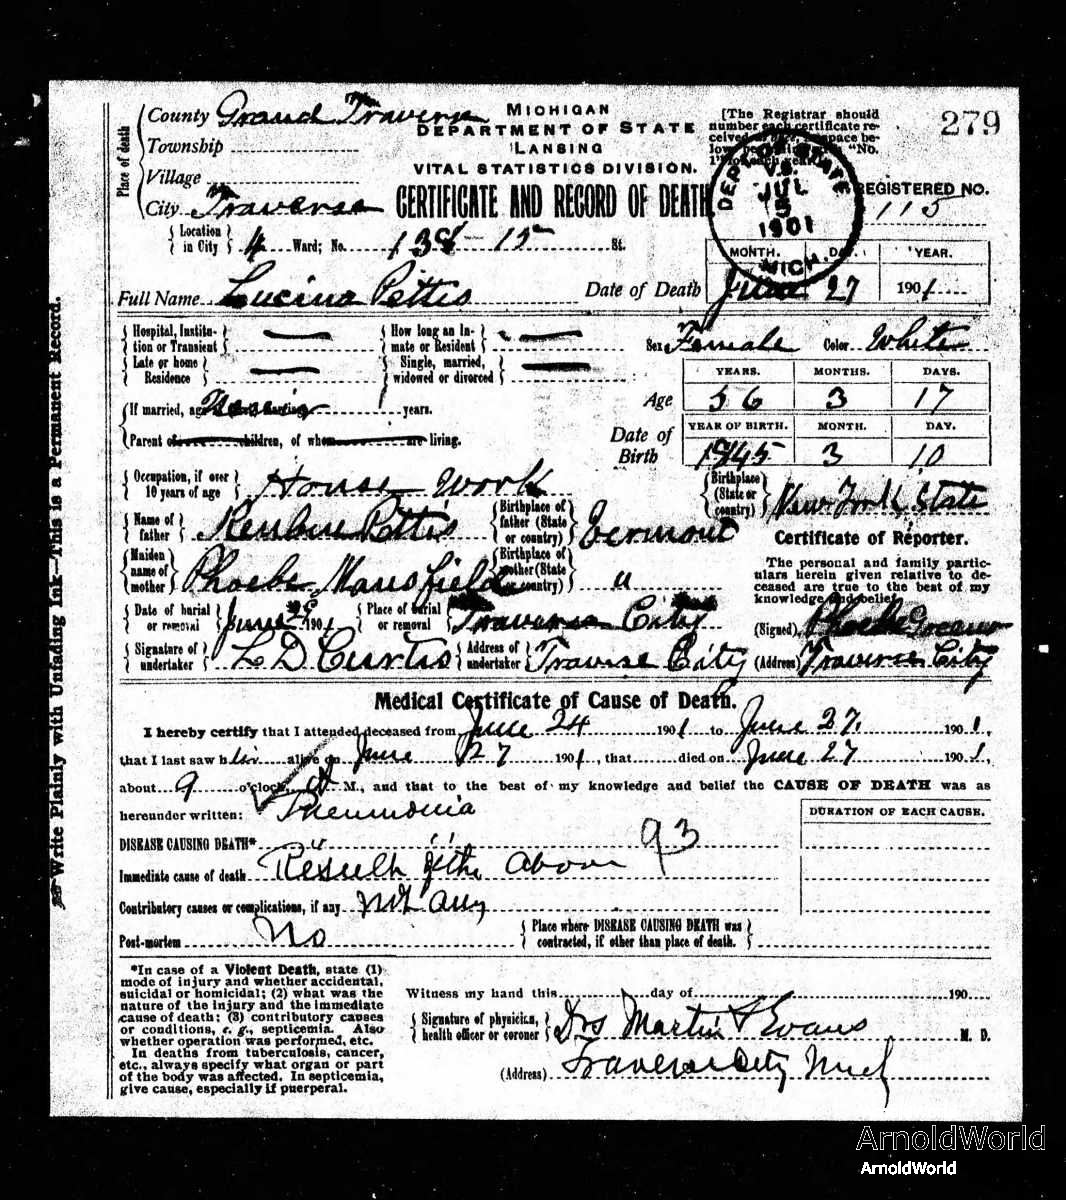 279
County Grand Traverse
MICHIGAN
DEPARTMENT OF STATE
LANSING
VITAL STATISTICS DIVISION.
CERTIFICATE AND RECORD OF DEATH
Place of death
Township
Village
City Traverse
[The Registrar should
number each certificate re-
"No.
DEPT OF STATE
V.S.
JUL
5
1901
MICH.
REGISTERED NO.
115
Location in City 4 Ward; No. 138 - 15 St.
Full Name Lucina Pettis
Date of Death
MONTH. DAY. YEAR.
June 27 1901
Hospital, Institution or Transient
How long an Inmate or Resident
Sex Female Color White
Late or home Residence
Single, married, widowed or divorced
Age
YEARS. MONTHS. DAYS.
56 3 17
If married, age years.
Parent of children, of whom are living.
Date of Birth
YEAR OF BIRTH. MONTH. DAY.
1845 3 10
Occupation, if over 10 years of age House work
Birthplace (State or country) New York State
Name of father Reuben Pettis
Birthplace of father (State or country) Vermont
Maiden name of mother Phoebe Mansfield
Birthplace of mother (State or country) "
Certificate of Reporter.
The personal and family partic-
ulars herein given relative to de-
ceased are true to the best of my
knowledge and belief.
Date of burial or removal June 1901
Place of burial or removal Traverse City
(Signed) Phoebe
Signature of undertaker L D Curtis
Address of undertaker Travrse City
(Address) Traverse City
Medical Certificate of Cause of Death.
I hereby certify that I attended deceased from June 24 1901 to June 27. 1901,
that I last saw h alive on June 27 1901, that died on June 27 1901,
about 9 o'clock, M., and that to the best of my knowledge and belief the CAUSE OF DEATH was as
hereunder written: Pneumonia
DURATION OF EACH CAUSE.
DISEASE CAUSING DEATH* "
93
Immediate cause of death Result of the above
Contributory causes or complications, if any Not any
Post-mortem No
Place where DISEASE CAUSING DEATH was contracted, if other than place of death.
*In case of a Violent Death, state (1)
mode of injury and whether accidental,
suicidal or homicidal; (2) what was the
nature of the injury and the immediate
cause of death; (3) contributory causes
or conditions, e. g., septicemia. Also
whether operation was performed, etc.
In deaths from tuberculosis, cancer,
etc., always specify what organ or part
of the body was affected. In septicemia,
give cause, especially if puerperal.
Witness my hand this day of 190
Signature of physician, health officer or coroner Drs Martin & Evans M. D.
(Address) Traverse City Mich
Write Plainly with Unfading Ink—This is a Permanent Record.
ArnoldWorld
ArnoldWorld